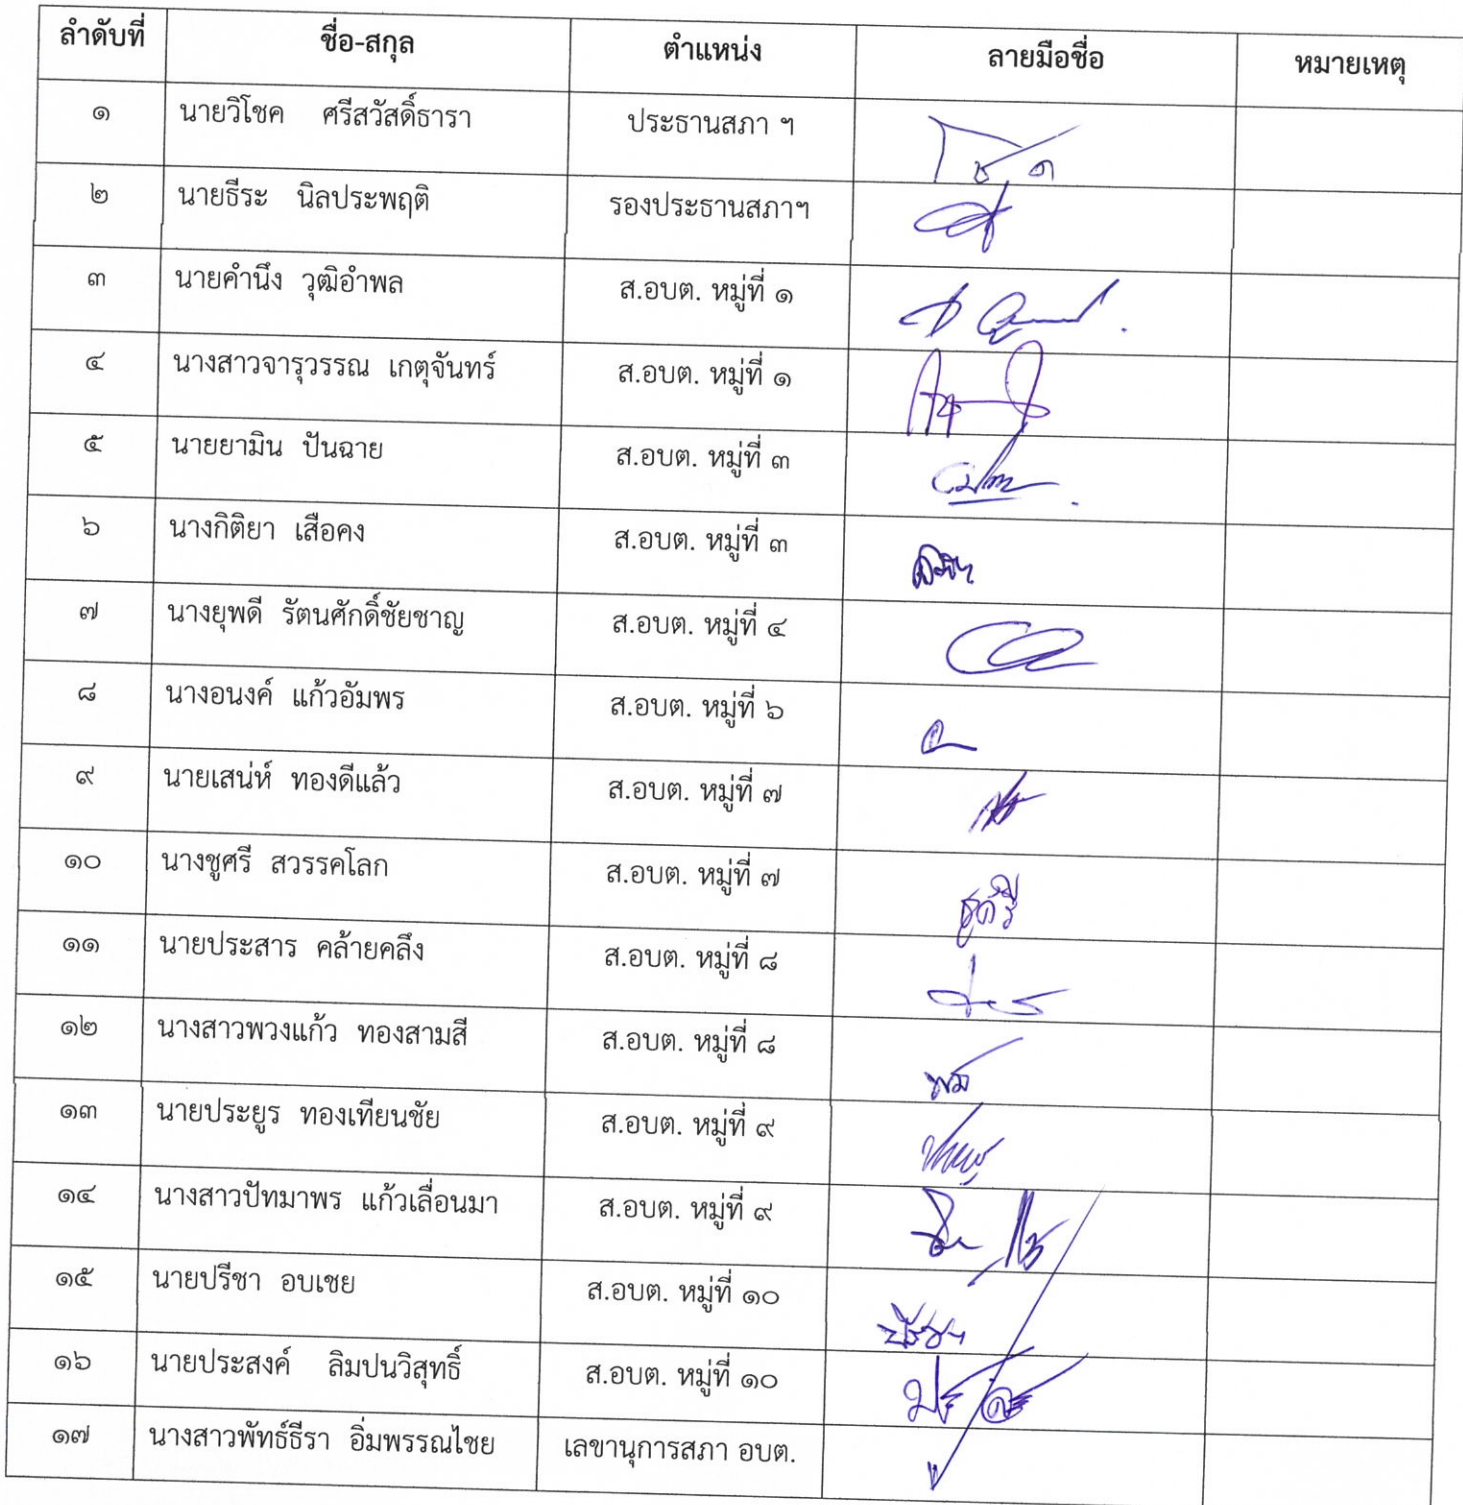 ลำดับที่ ชื่อ-สกุล ตำแหน่ง ลายมือชื่อ หมายเหตุ
๑ นายวิโชค ศรีสวัสดิ์ธารา ประธานสภา ฯ
๒ นายธีระ นิลประพฤติ รองประธานสภาฯ
๓ นายคำนึง วุฒิอำพล ส.อบต. หมู่ที่ ๑
๔ นางสาวจารุวรรณ เกตุจันทร์ ส.อบต. หมู่ที่ ๑
๕ นายยามิน ปันฉาย ส.อบต. หมู่ที่ ๓
๖ นางกิติยา เสือคง ส.อบต. หมู่ที่ ๓
๗ นางยุพดี รัตนศักดิ์ชัยชาญ ส.อบต. หมู่ที่ ๔
๘ นางอนงค์ แก้วอัมพร ส.อบต. หมู่ที่ ๖
๙ นายเสน่ห์ ทองดีแล้ว ส.อบต. หมู่ที่ ๗
๑๐ นางชูศรี สวรรคโลก ส.อบต. หมู่ที่ ๗ ชูศรี
๑๑ นายประสาร คล้ายคลึง ส.อบต. หมู่ที่ ๘
๑๒ นางสาวพวงแก้ว ทองสามสี ส.อบต. หมู่ที่ ๘
๑๓ นายประยูร ทองเทียนชัย ส.อบต. หมู่ที่ ๙
๑๔ นางสาวปัทมาพร แก้วเลื่อนมา ส.อบต. หมู่ที่ ๙
๑๕ นายปรีชา อบเชย ส.อบต. หมู่ที่ ๑๐ ปรีชา
๑๖ นายประสงค์ ลิมปนวิสุทธิ์ ส.อบต. หมู่ที่ ๑๐
๑๗ นางสาวพัทธ์ธีรา อิ่มพรรณไชย เลขานุการสภา อบต.